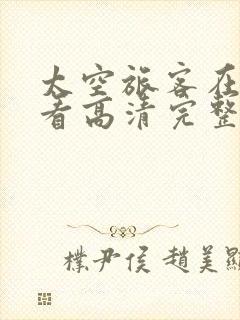 太空旅客在
看高清完整
樸尹侯 趙美顯